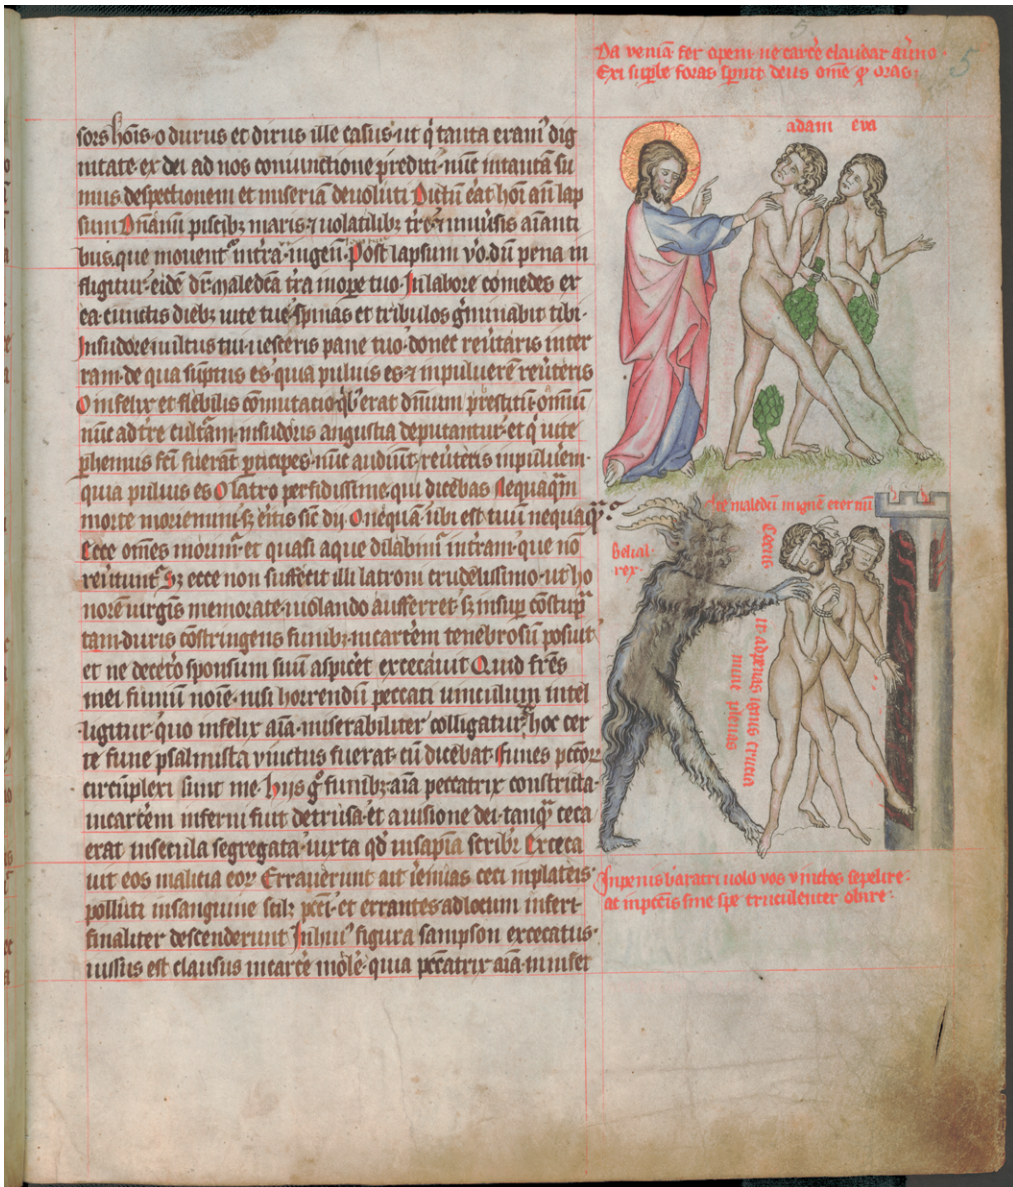 5
5
Da veniā fer opem ne carc̄e claudar av̄no
Exi suꝑbe foras sp̄nit deus om̄e qd̓ oras
adam eva
sors hoīs o durus et dirus ille casus ut q̓ tanta eram᾽ dig
nitate ex dei ad nos coniunctione p̄rediti nūc in tantā su
mus despectionem et miseriā deuoluti Dictū ēat hoī an̄ lap
sum Dn̄amī piscibꝫ maris ⁊ uolatilibꝫ tr̄e ⁊ uniūsis aīanti
bus que mouent᾽ in tr̄a ingen̄ Post lapsum v̓o dū pena in
fligitur eidē dr̄ maledc̄a tr̄a in oꝑe tuo In labore comedes ex
ea cunctis diebꝫ uite tue spinas et tribulos ḡminabit tibi
In sudore uultus tui uesceris pane tuo donec reu̓taris in ter
ram de qua sūptus es quia puluis es ⁊ in puluerē reu̓teris
O infelix et flebilis cōmutatio qibꝫ erat dn̄ium prestitū om̄iū
nūc ad tr̄e cultr̄am in sudoris angustia deputantur et q̓ uite
ꝑhennis fc̄i fuerāt ꝑticipes nūc audiūt reu̓teris in pulu̓em
quia puluis es O latro perfidissime qui dicebas Nequaq̄m
morte moriemini sꝫ er̓tis sic̄ dii O nequā ubi est tuū nequaq̄ꝫ
Ecce om̄es morim᾽ et quasi aque dilabim᾽ in tr̄am que nō
reu̓tunt᾽ Sꝫ ecce non suffecit illi latroni crudelissimo ut ho
norē uirgīs memorate uiolando aufferret sꝫ insuꝑ cōstup̄
tam duris cōstringens funibꝫ in carc̄em tenebrosū posuit
et ne decet̓o sponsum suū aspic̓et excecauit Quid fr̄es
mei funiū noīe nisi horrendū peccati uinculum intel
ligitur quo infelix aīa miserabiliter colligatur hoc cer
te fune psalmista vinctus fuerat cū dicebat Funes pc̄coꝝ
circūplexi sunt me Hiis g̊ funibꝫ aīa peccatrix constricta
in carc̄em inferni fuit detrusa et a uisione dei tanq̄ ceca
erat in secula segregata iuxta qd̓ in sapīa scribr̄ Exceca
uit eos malicia eoꝝ Errauerunt ait ieīmias ceci in plateis
polluti in sanguine scilꝫ pc̄ci et errantes ad locum inferi
finaliter descenderunt In hui᾽ figura sampson excecatus
iussus est clausus in carc̄e molē quia pc̄catrix aīa in infer
Ite maledc̄i in ignē eternū
Belial
rex
Cecus
it ad penas ignis crucia
mine plenas
In penis baratri uolo vos vinctos sepelire
ac in pt̄eis sine spe truculenter obire